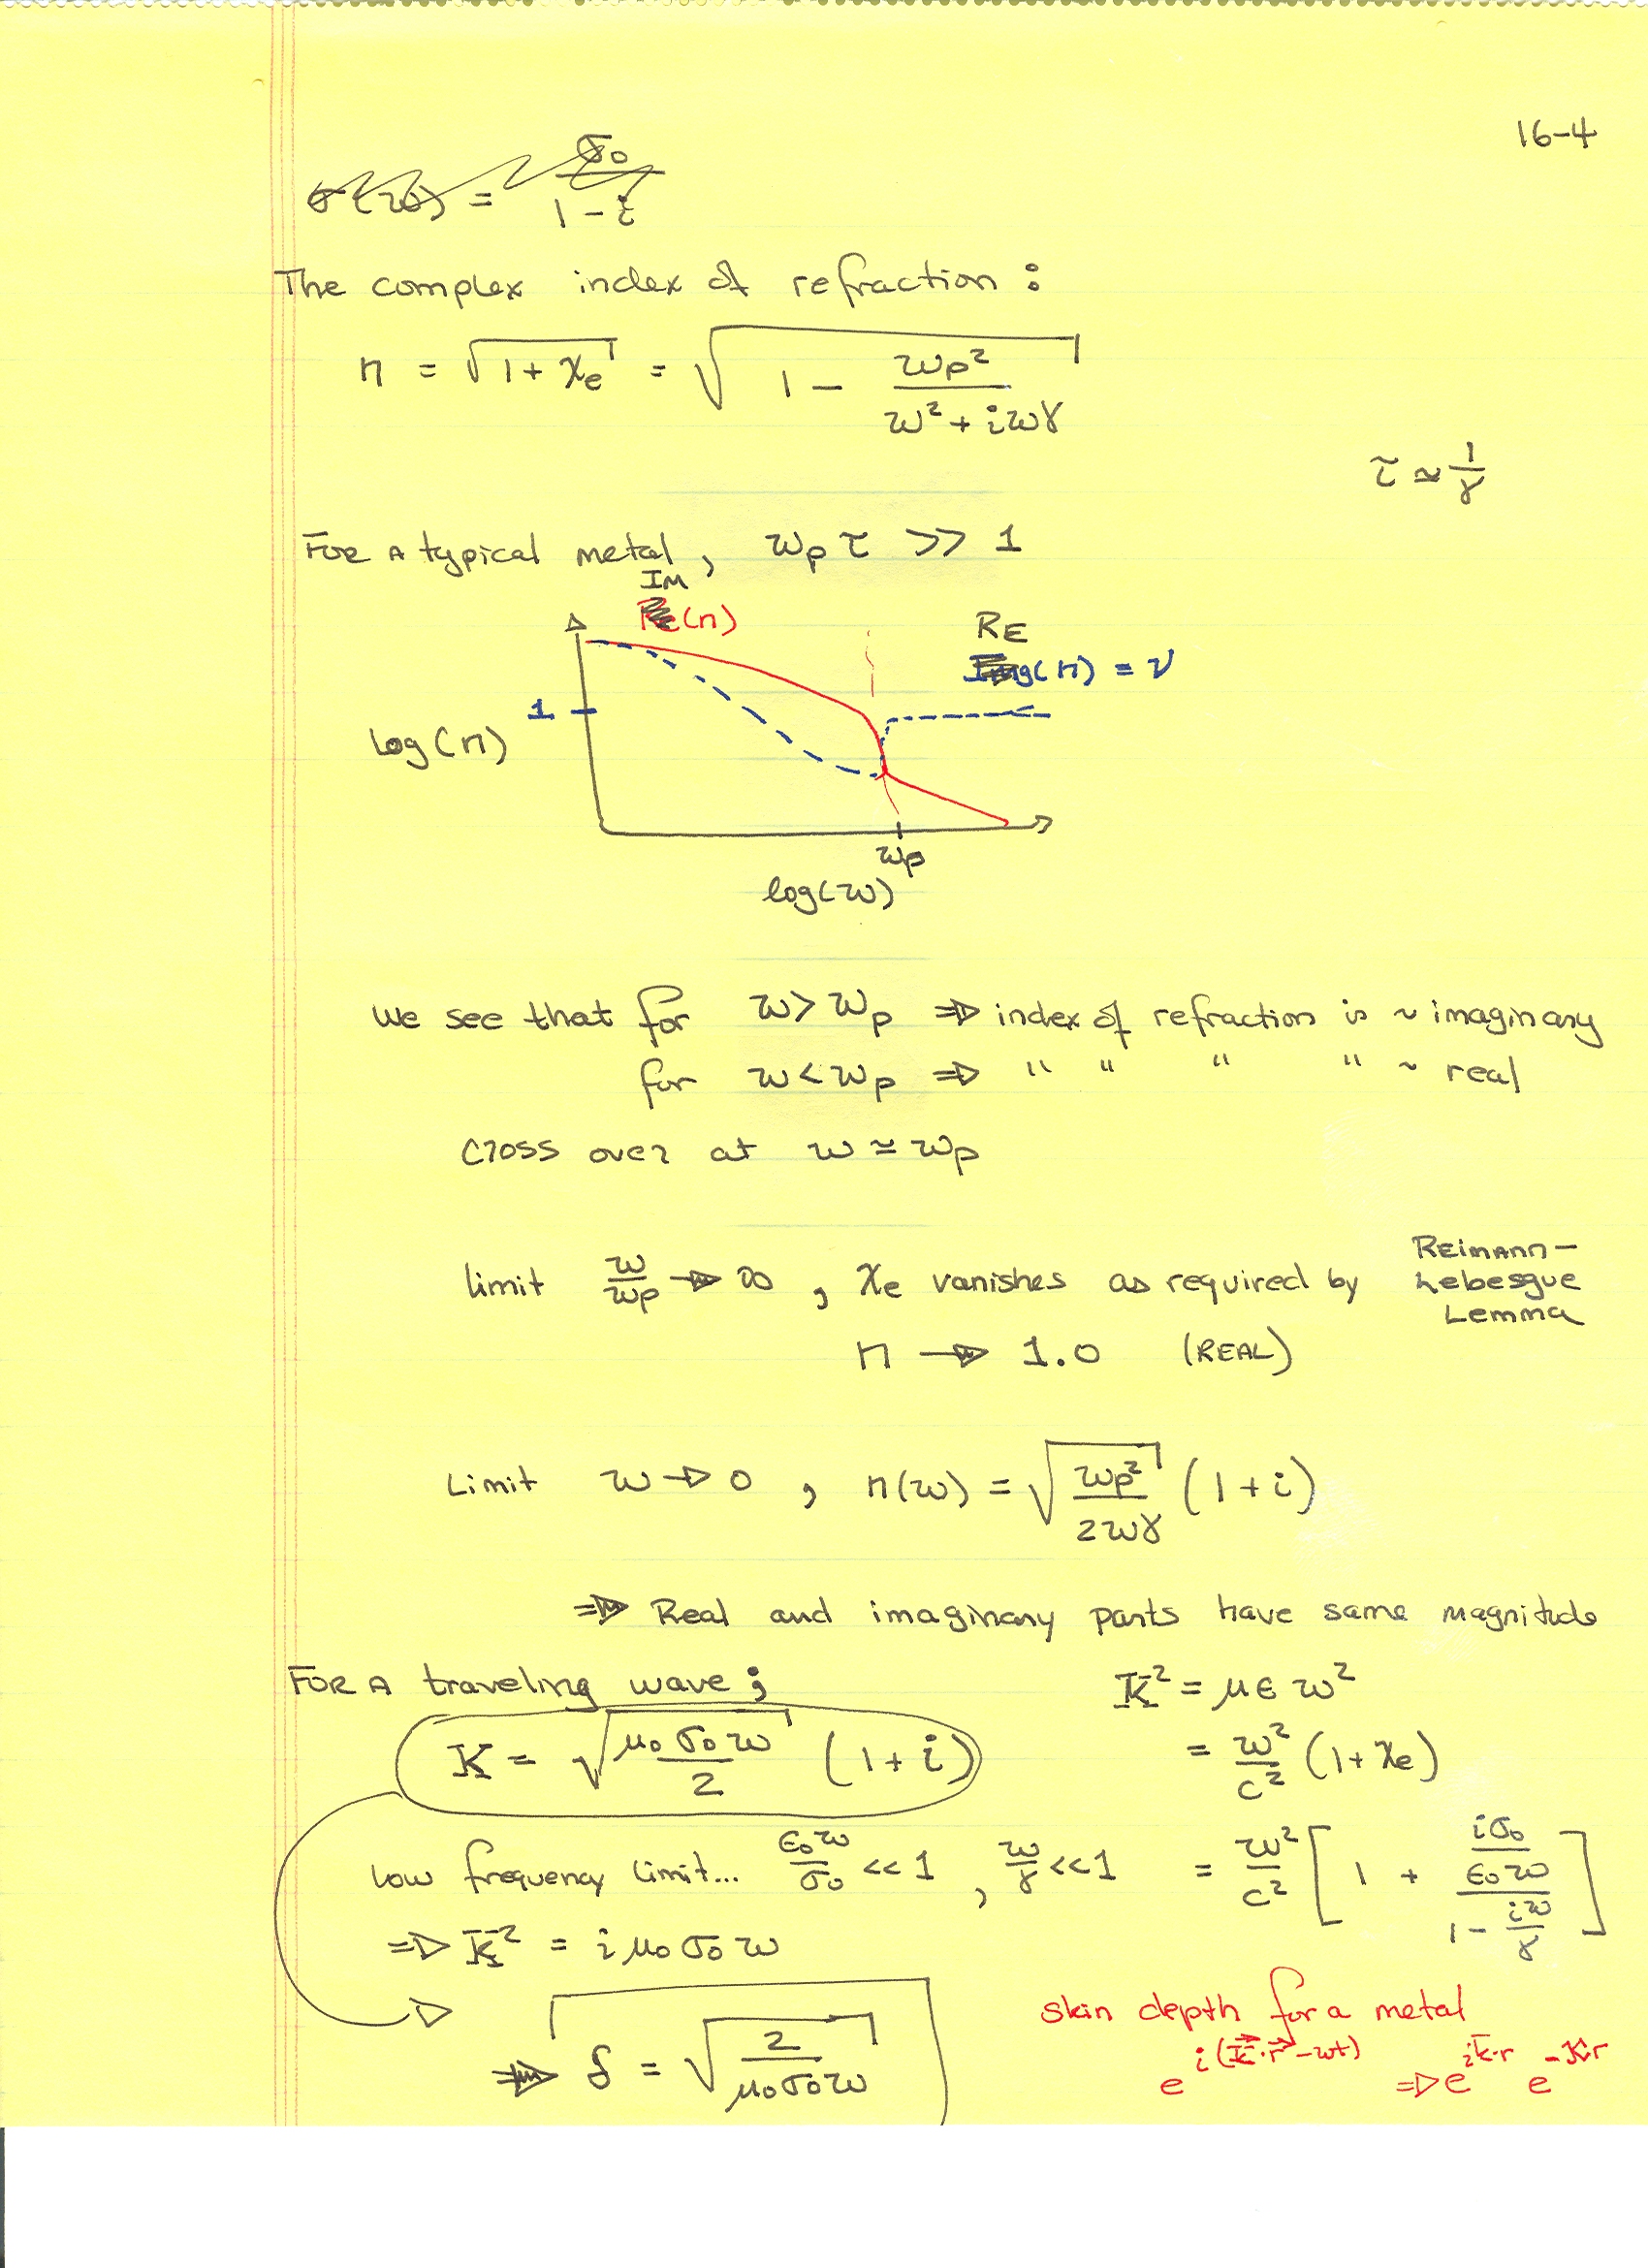 16-4
σ(ω) = σ₀ / (1 - i
The complex index of refraction :
n = √(1 + χe) = √(1 - ωp² / (ω² + iωγ))
τ ≃ 1/γ
FOR A typical metal, ωp τ >> 1
IM
Re(n)
RE
Img(n) = ν
1
log(n)
ωp
log(ω)
We see that for ω > ωp ⇒ index of refraction is ~ imaginary
for ω < ωp ⇒ " " " " ~ real
cross over at ω ≃ ωp
limit ω/ωp → ∞ , χe vanishes as required by REIMANN-
Lebesgue
Lemma
n → 1.0 (REAL)
Limit ω → 0 , n(ω) = √(ωp² / 2ωγ) (1 + i)
⇒ Real and imaginary parts have same magnitude
FOR A traveling wave ;
K² = μϵ ω²
K = √(μ₀ σ₀ ω / 2) (1 + i)
= ω²/c² (1 + χe)
Low frequency limit... ϵ₀ω/σ₀ << 1 , ω/γ << 1
= ω²/c² [ 1 + (iσ₀/ϵ₀ω) / (1 - iω/γ) ]
⇒ K² = i μ₀ σ₀ ω
skin depth for a metal
⇒ δ = √(2 / μ₀σ₀ω)
e^i(K⃗·r⃗ - ωt) ⇒ e^ik·r e^-K·r